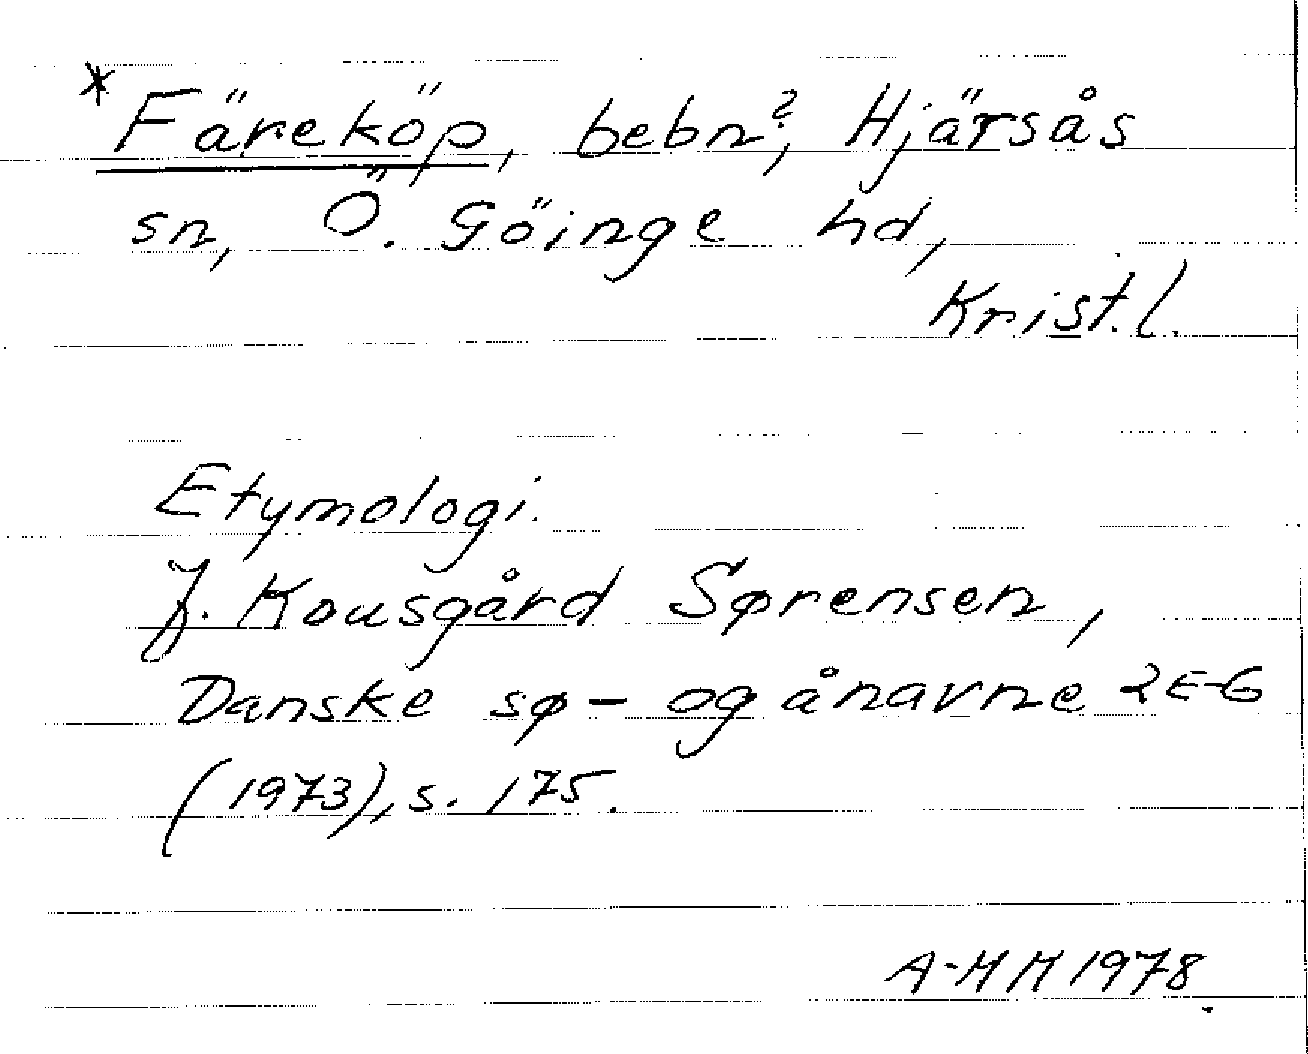 *Färeköp, bebn?, Hjärsås
sn, Ö. Göinge hd,
Krist. l.
Etymologi.
J. Kousgård Sørensen,
Danske sø- og ånavne 2 E-G
(1973), s. 175.
A-HH 1978.